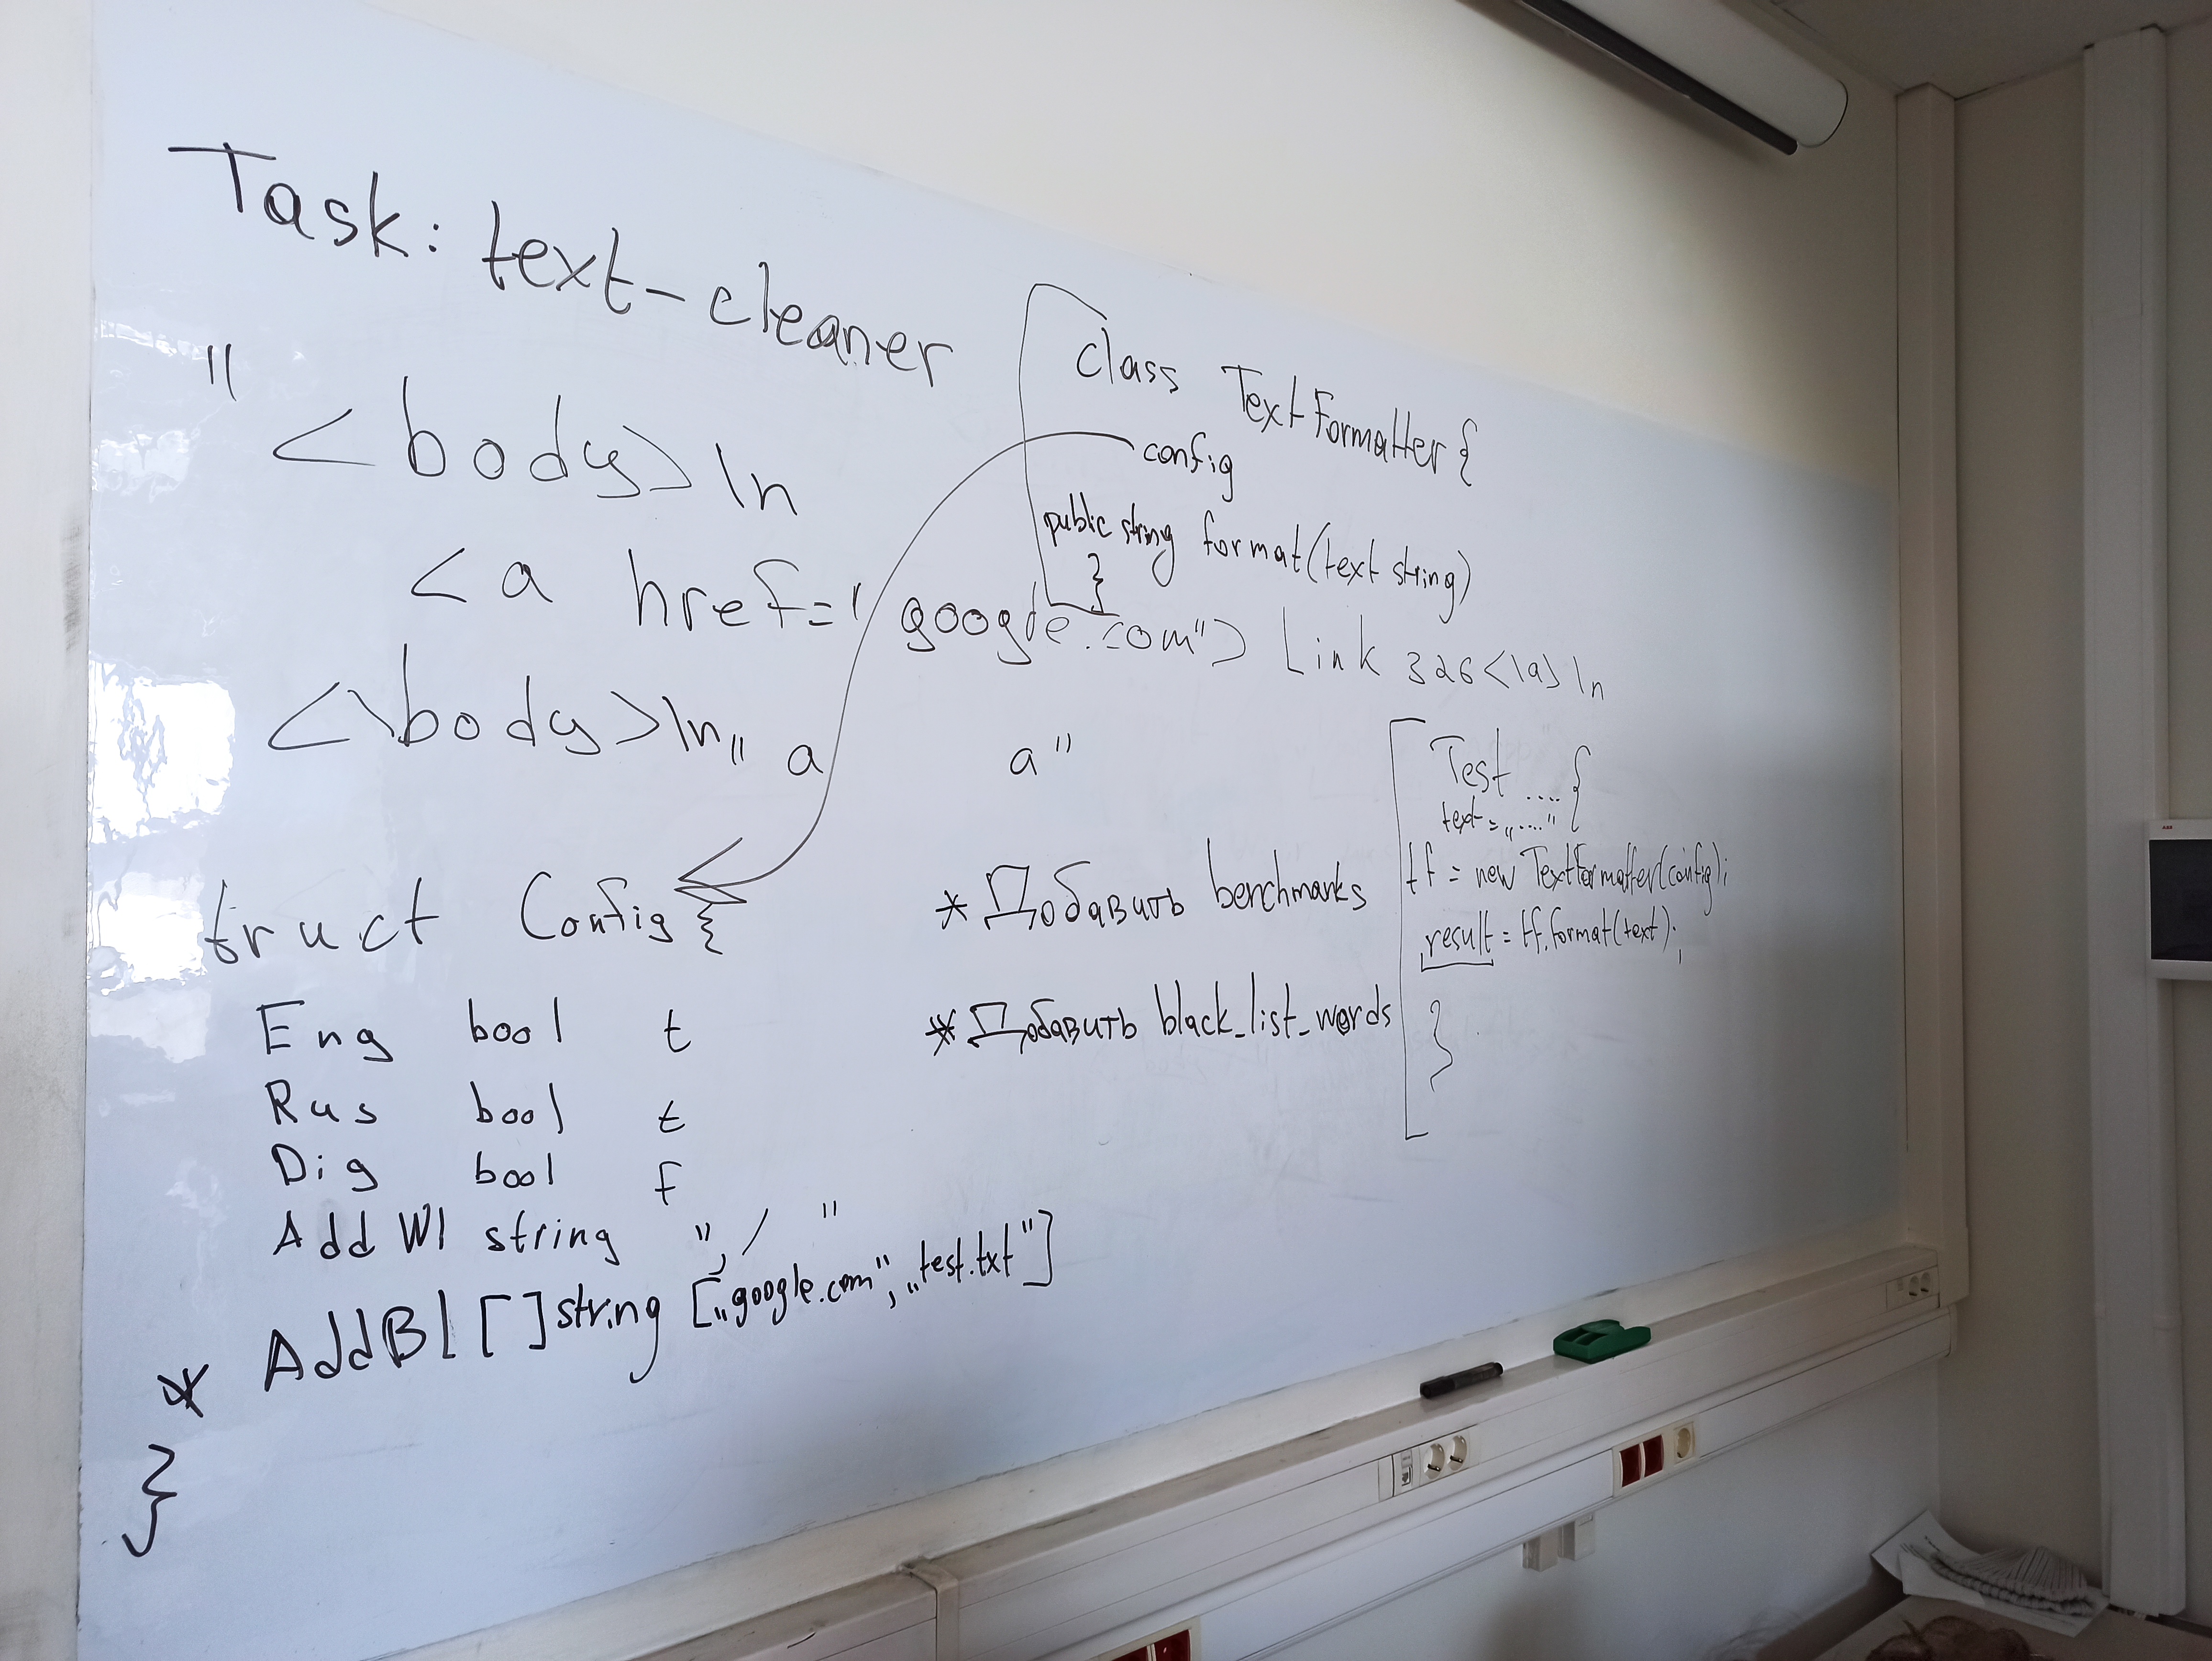 Task: text-cleaner
"<body>\n
<a href="google.com"> Link 326<\a>\n
<\body>\n" a a"
class TextFormatter {
config
public string format(text string)
}
truct Config {
Eng bool t
Rus bool t
Dig bool f
Add Wl string ",/ "
* AddBl []string [„google.com", „test.txt"]
}
* Добавить benchmarks
* Добавить black_list_words
Test .... {
text = „...."
tf = new TextFormatter(config);
result = tf.format(text);
}
ABB